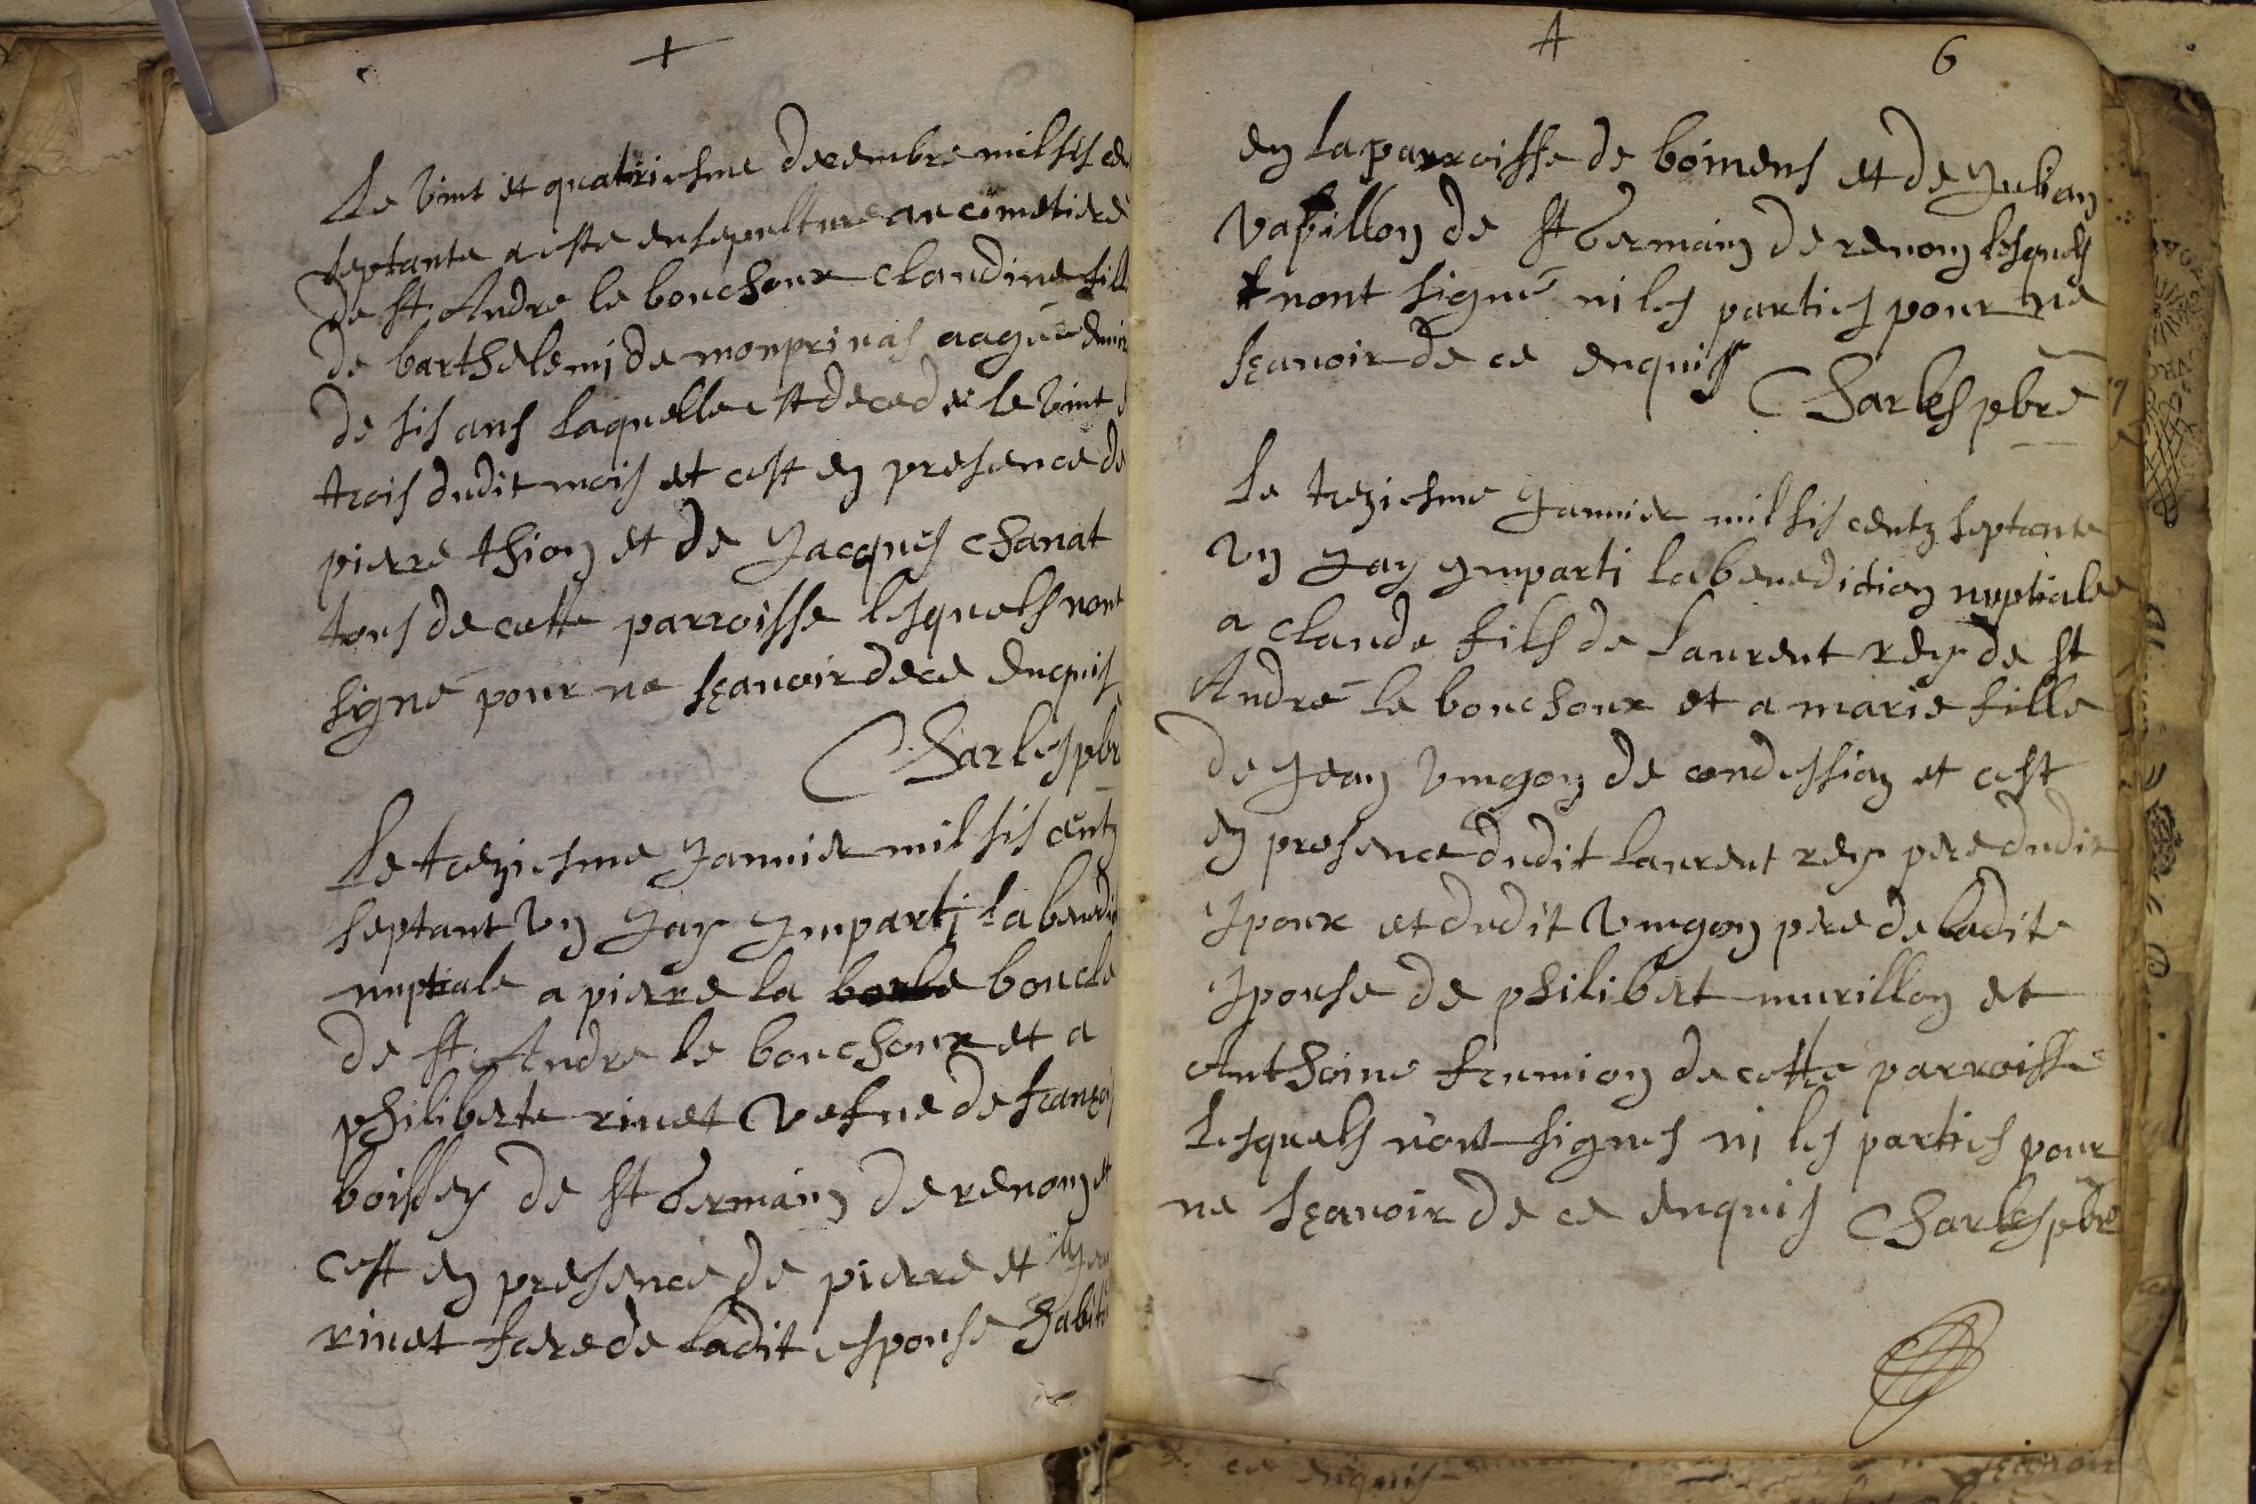 +
Le vint et quatriesme decembre mil sis cen
septante a este ensepulture au cimetiere
de st Andre le bouchoux claudine fille
de barthelemi de monprivas aagee
de sis ans laquelle est decedee le vint
trois dudit mois et cest en presence de
pierre thion et de Jacques chanat
tous de cette parroisse lesquels nont
signé pour ne sçavoir de ce enquis
Charles pbr
Le treziesme Janvier mil sis centz
septant un Jay Imparti la benedi
nuptiale a pierre la boucle
de st Andre le bouchoux et a
philiberte rivet vefve de françois
boissey de st Germain de renom et
cest en presence de pierre et
rivet frere de ladit espouse habit
A 6
en la parroisse de bômens et de Julian
vapillon de st Germain de renom lesquels
nont signé ni les parties pour ne
sçavoir de ce enquis
Charles pbre
Le treziesme Janvier mil sis centz septante
un Jay Imparti la benediction nuptiale
a claude fils de laurent rey de st
André le bouchoux et a marie fille
de Jean vingon de condession et cest
en presence dudit laurent rey pere dudit
Ipoux et dudit vingon pere de ladite
Ipouse de philibert murillon et
Anthoine frumion de cette parroisse
Lesquels n'ont signes ni les parties pour
ne sçavoir de ce enquis Charles pbre
de ce enquis